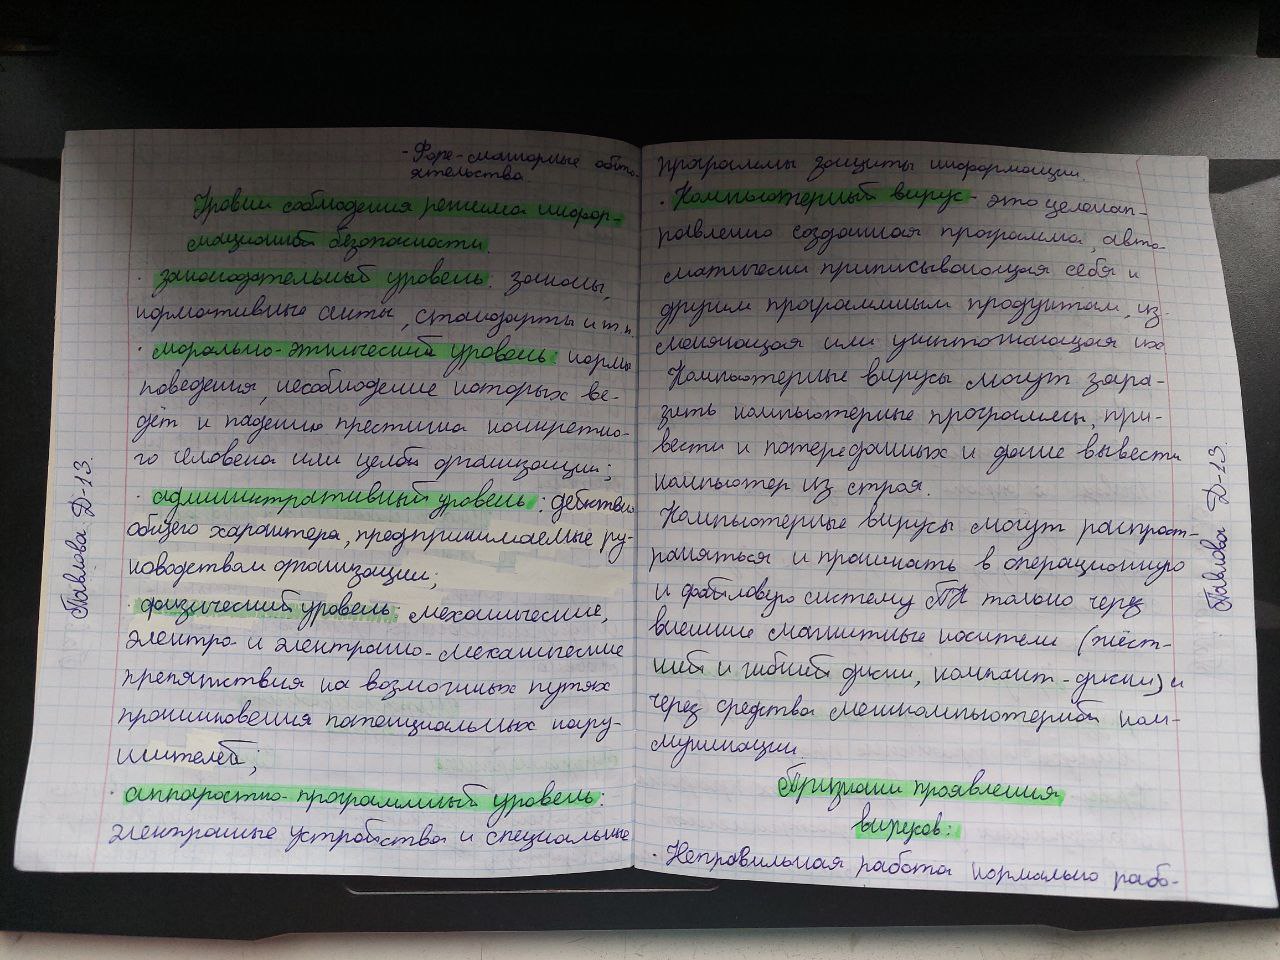 - Форс-мажорные обсто-
ятельства.
Уровни соблюдения режима инфор-
мационной безопасности.
· законодательный уровень: законы,
нормативные акты, стандарты и т.п.
· морально-этический уровень: нормы
поведения, несоблюдение которых ве-
дёт к падению престижа конкретно-
го человека или целой организации;
· административный уровень: действия
общего характера, предпринимаемые ру-
ководством организации;
· физический уровень: механические,
электро- и электронно-механические
препятствия на возможных путях
проникновения потенциальных нару-
шителей;
· аппаратно-программный уровень:
электронные устройства и специальные
Павлова Д-13.
программы защиты информации.
· Компьютерный вирус - это целенап-
равленно созданная программа, авто-
матически приписывающая себя к
другим программным продуктам, из-
меняющая или уничтожающая их
Компьютерные вирусы могут зара-
зить компьютерные программы, при-
вести к потере данных и даже вывести
компьютер из строя.
Компьютерные вирусы могут распрост-
раняться и проникать в операционную
и файловую систему ПК только через
внешние магнитные носители (жёст-
кий и гибкий диски, компакт-диски) и
через средства межкомпьютерной ком-
муникации.
Признаки проявления
вирусов:
· Неправильная работа нормально рабо-
Павлова Д-13.